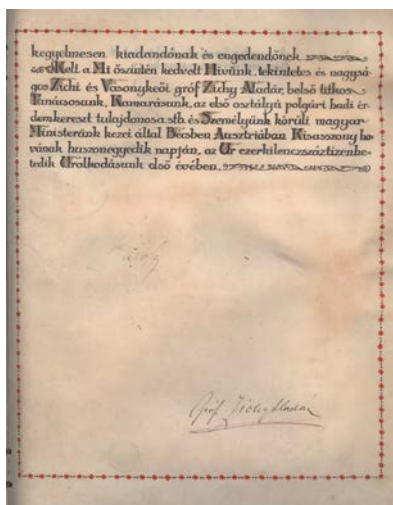 kegyelmesen kiadandónak és engedendőnek
Kelt a Mi őszintén kedvelt Hívünk, tekintetes és nagysá-
gos Zichi és Vasonykeöi gróf Zichy Aladár, belső titkos
Tanácsosunk, Kamarásunk, az első osztályú polgári hadi ér-
demkereszt tulajdonosa stb. és Személyünk körüli magyar
Ministerünk kezei által Bécsben Ausztriában Kisasszony ha-
vának huszonegyedik napján, az Úr ezerkilenczszáztizenhe-
tedik Uralkodásunk első évében.
Gróf Zichy Aladár